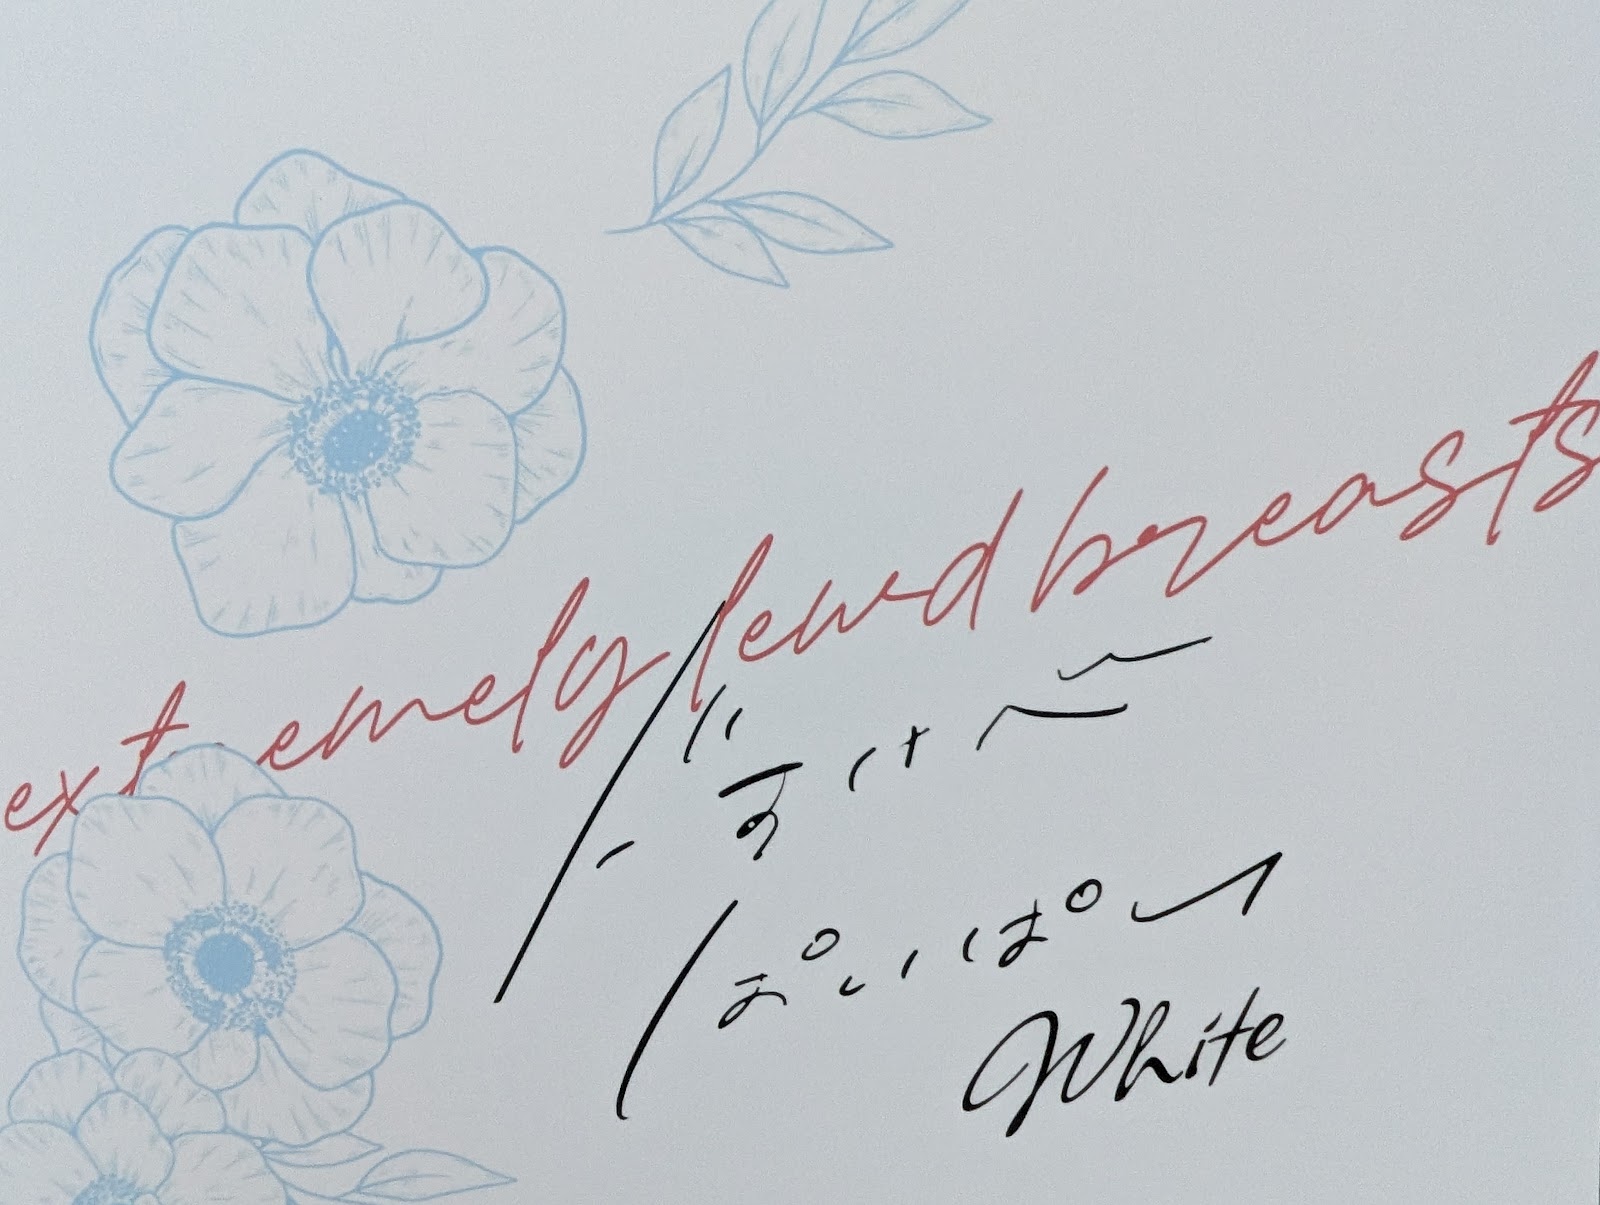 extremely lewd breasts
ドすけべ
ぱいぱい
White